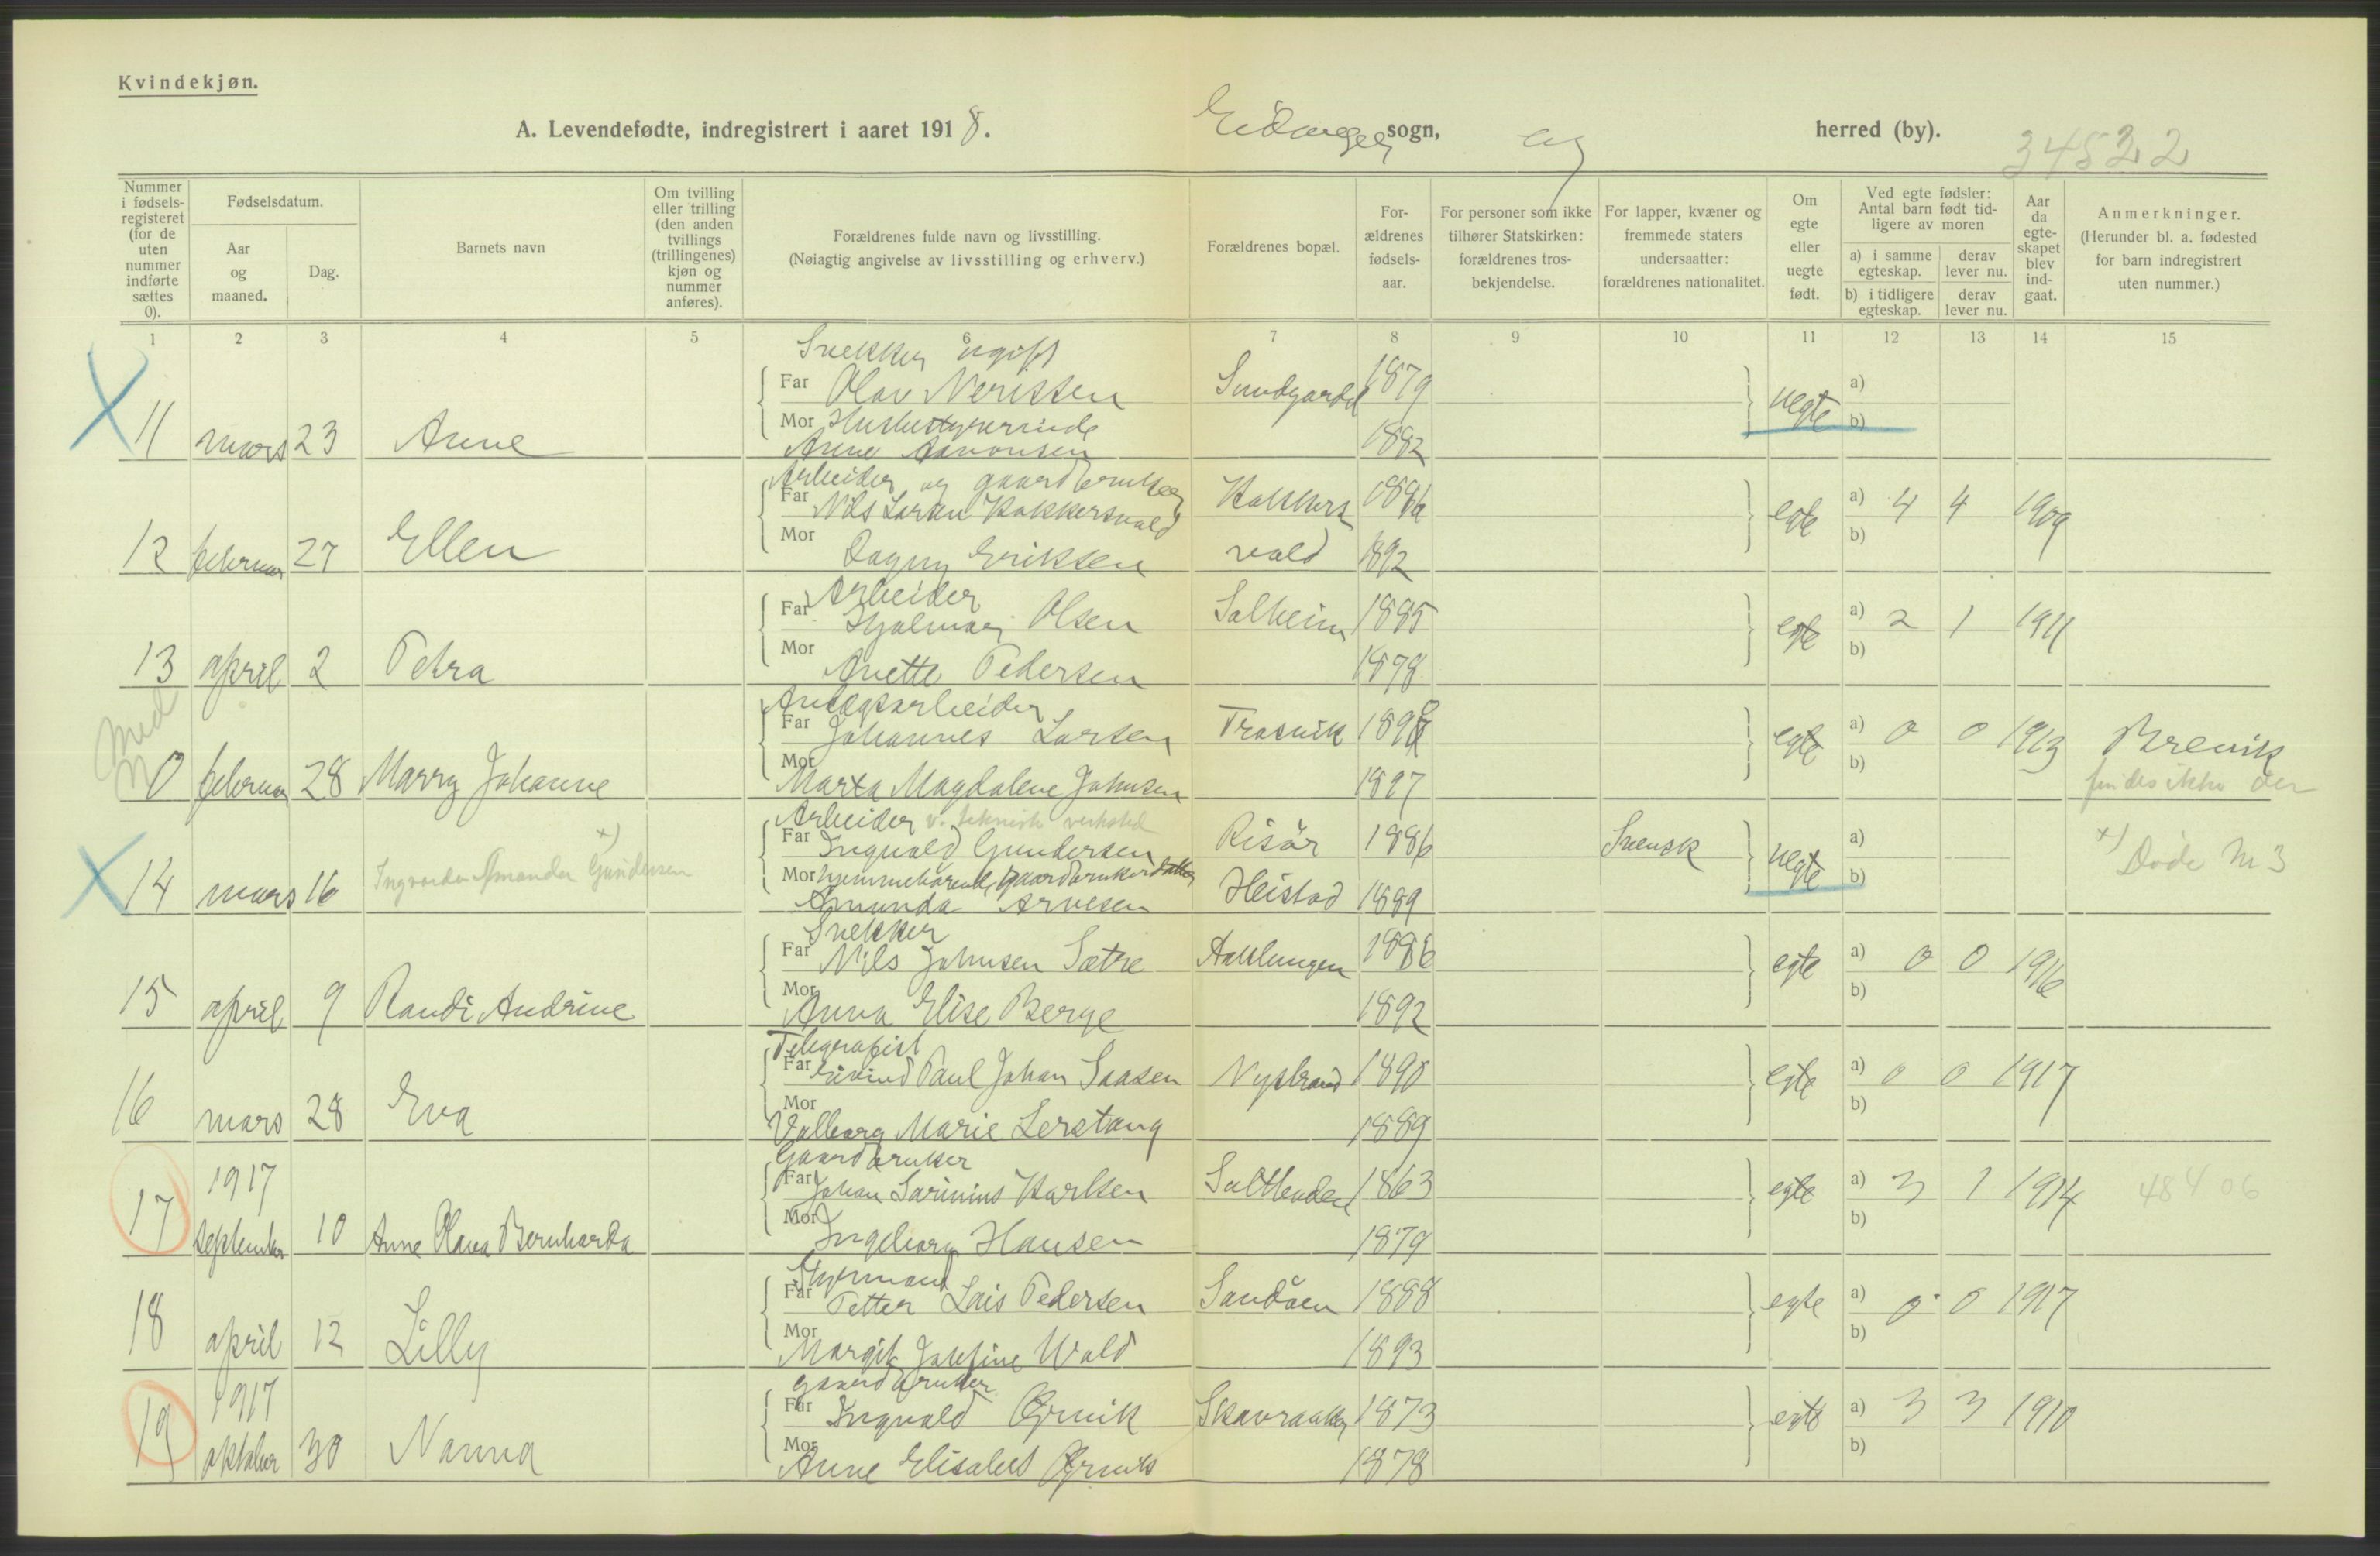 Kvindekjøn.
A. Levendefødte, indregistrert i aaret 1918. Eidanger sogn, og herred (by).
34522
Nummer i fødselsregisteret (for de uten nummer indførte sættes 0).
Fødselsdatum.
Aar og maaned.
Dag.
Barnets navn
Om tvilling eller trilling (den anden tvillings (trillingenes) kjøn og nummer anføres).
Forældrenes fulde navn og livsstilling.
(Nøiagtig angivelse av livsstilling og erhverv.)
Forældrenes bopæl.
Forældrenes fødselsaar.
For personer som ikke tilhører Statskirken: forældrenes trosbekjendelse.
For lapper, kvæner og fremmede staters undersaatter: forældrenes nationalitet.
Om egte eller uegte født.
Ved egte fødsler: Antal barn født tidligere av moren
a) i samme egteskap. derav lever nu.
b) i tidligere egteskap. derav lever nu.
Aar da egteskapet blev indgaat.
Anmerkninger.
(Herunder bl. a. fødested for barn indregistrert uten nummer.)
1 2 3 4 5 6 7 8 9 10 11 12 13 14 15
Snekker ugift
Far Olav Nerissen Sundgardel 1879 uegte a)
Mor Husbestyrerinde b)
X 11 mars 23 Anne Anne Aanonsen 1882
Arbeider og gaardbruker
Far Nils Larsen Kokkersvold Kokkers 1886 egte a) 4 4 1909
Mor b)
12 februar 27 Ellen Dagny Eriksen vold 1892
Arbeider
Far Hjalmar Olsen Solheim 1885 egte a) 2 1 1911
Mor b)
13 april 2 Petra Anette Pedersen 1878
Med
Anlægsarbeider
Far Johannes Larsen Trosvik 1898 egte a) 0 0 1913 Brevik
Mor b)
0 februar 28 Marry Johanne Marta Magdalene Johnsen 1897 findes ikke der
Arbeider v. teknisk verksted
Far Ingvald Gundersen Risör 1886 Svensk uegte a) x) Døde Nr 3
Mor hjemmeværende, gaardbrukerdatter b)
X 14 mars 16 Ingvarda Amanda Gundersen x) Amunda Arvesen Heistad 1889
Snekker
Far Nils Johnsen Sætre Aaklungen 1886 egte a) 0 0 1916
Mor b)
15 april 9 Randi Andrine Anna Elise Berge 1892
Telegrafist
Far Eivind Paul Johan Saasen Nystrand 1890 egte a) 0 0 1917
Mor b)
16 mars 28 Eva Valborg Marie Lerstang 1889
Gaardbruker
1917 Far Johan Sarinius Karlsen Saltboden 1863 egte a) 3 1 1914 48406
Mor b)
17 september 10 Anne Olava Bernharda Ingeborg Hansen 1879
Styrmand
Far Petter Lais Pedersen Sandöen 1888 egte a) 0 0 1917
Mor b)
18 april 12 Lilly Margit Josefine Wold 1893
gaardbruker
1917 Far Ingvald Ørnvik Skavraaker 1873 egte a) 3 3 1910
Mor b)
19 oktober 30 Nanna Anne Elisabet Ørnvik 1878